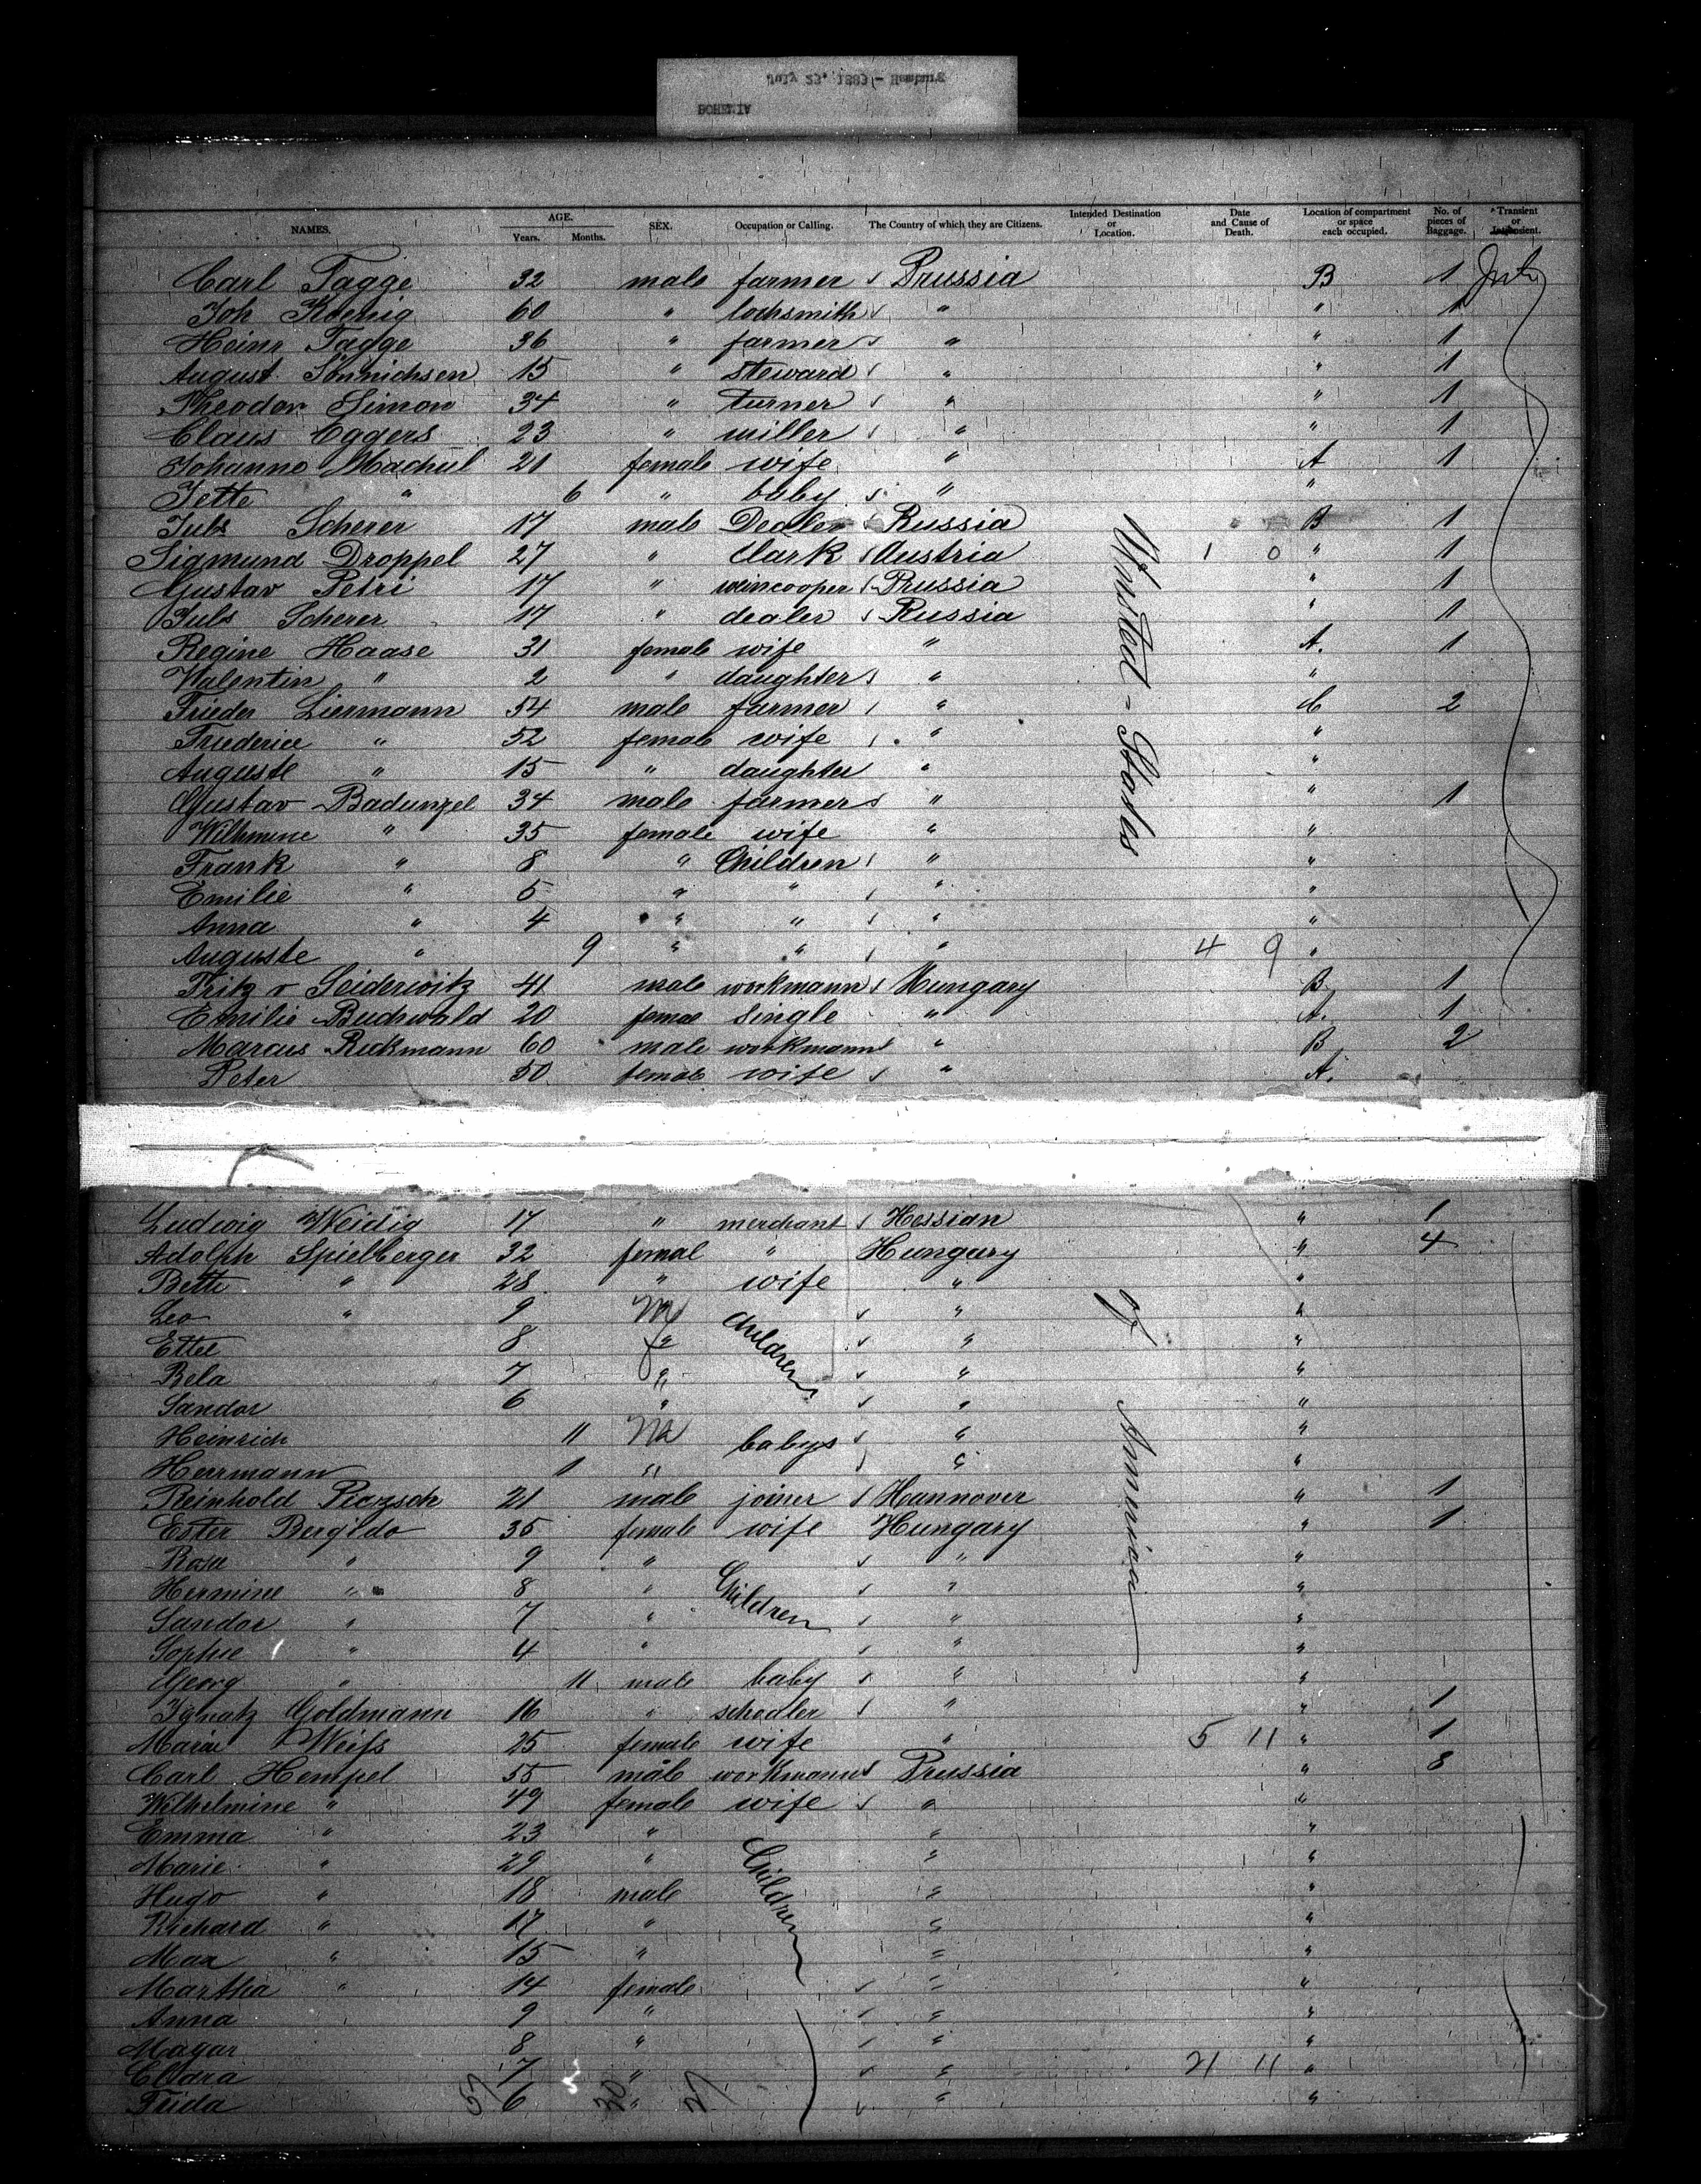 July 23, 1883 - Hamburg
BOHEMIA
NAMES. AGE. Years. Months. SEX. Occupation or Calling. The Country of which they are Citizens. Intended Destination or Location. Date and Cause of Death. Location of compartment or space each occupied. No. of pieces of Baggage. Transient or
Carl Tagge 32 male farmer Prussia B 1
Joh Koenig 60 " locksmith " " 1
Heinr Tagge 36 " farmer " " 1
August Sönnichsen 15 " steward " " 1
Theodor Simon 34 " turner " " 1
Claus Eggers 23 " miller " " 1
Johanne Machul 21 female wife " A 1
Jette " 6 " baby " "
Juls Scherer 17 male Dealer Russia B 1
Sigmund Droppel 27 " Clark Austria 1 0 " 1
Gustav Petri 17 " wincooper Prussia " 1
Juls Scherer 17 " dealer Russia " 1
Regine Haase 31 female wife " A. 1
Valentin " 2 " daughter " "
Frieder Liermann 54 male farmer " C 2
Friederice " 52 female wife " "
Auguste " 15 " daughter " "
Gustav Badunzel 34 male farmer " " 1
Wilhmine " 35 female wife " "
Frank " 8 " Children " "
Emilie " 5 " " " "
Anna " 4 " " " "
Auguste " 9 " " " 4 9 "
Fritz v Seiderwitz 41 male workmann Hungary B 1
Emilie Buchwald 20 femal single " A. 1
Marcus Rickmann 60 male workmann " B 2
Peter 50 female wife " A.
United - States
Ludwig Weidig 17 " merchant Hessian " 1
Adolph Spielberger 32 femal " Hungary " 4
Bette " 28 " wife " "
Leo " 9 M children " "
Ettel 8 f " "
Bela 7 " " "
Sandor 6 " " "
Heinrich 11 M babys " "
Herrmann 1 " " "
Reinhold Piezsch 21 male joiner Hannover " 1
Ester Bergldo 35 female wife Hungary " 1
Rosa " 9 " " "
Hermine " 8 " Children " "
Sandor " 7 " " "
Sophie " 4 " " "
Georg " 11 male baby " "
Ignatz Goldmann 16 " schooler " " 1
Marie Weiſs 25 female wife " 5 11 " 1
Carl Hempel 55 male workmann Prussia " 8
Wilhelmine " 49 female wife " "
Emma " 23 " " "
Marie " 29 " Children " "
Hugo " 18 male " "
Richard " 17 " " "
Max " 15 " " "
Martha " 14 female " "
Anna 9 " " "
Magar 8 " " "
Eldra 7 " " 21 11 "
Frida 6 " " "
57 30 27
of
American